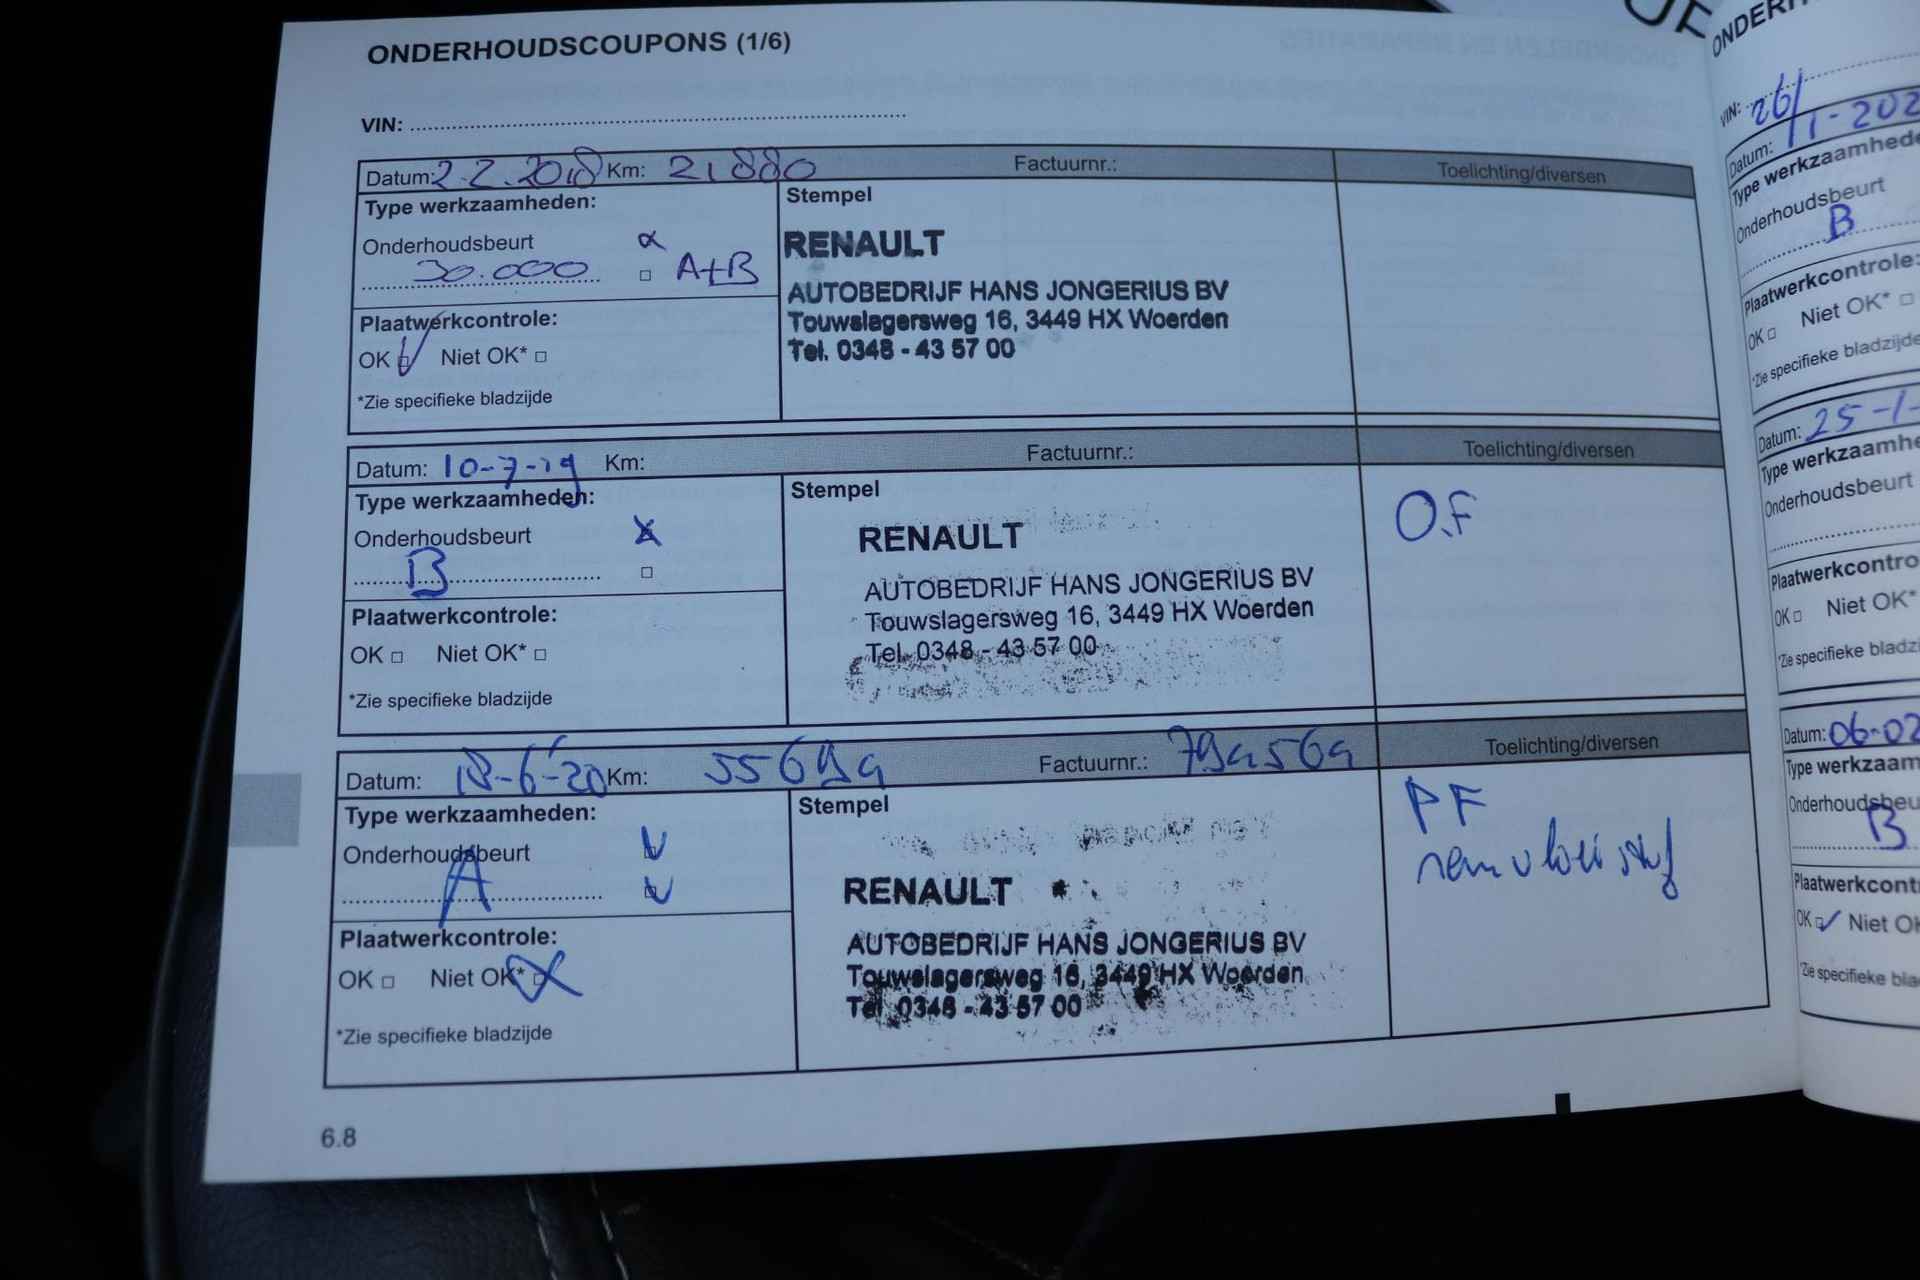 ONDERHOUDSCOUPONS (1/6)
VIN:
Datum: 2.2.2018 Km: 21880 Factuurnr.: Toelichting/diversen
Type werkzaamheden:
Stempel
Onderhoudsbeurt
30.000 A+B
Plaatwerkcontrole:
OK Niet OK*
*Zie specifieke bladzijde
RENAULT
AUTOBEDRIJF HANS JONGERIUS BV
Touwslagersweg 16, 3449 HX Woerden
Tel. 0348 - 43 57 00
Datum: 10-7-19 Km: Factuurnr.: Toelichting/diversen
Type werkzaamheden:
Stempel
Onderhoudsbeurt
B
Plaatwerkcontrole:
OK Niet OK*
*Zie specifieke bladzijde
RENAULT
AUTOBEDRIJF HANS JONGERIUS BV
Touwslagersweg 16, 3449 HX Woerden
Tel. 0348 - 43 57 00
O.F
Datum: 18-6-20 Km: Factuurnr.: Toelichting/diversen
Type werkzaamheden:
Stempel
Onderhoudsbeurt
A
Plaatwerkcontrole:
OK Niet OK*
*Zie specifieke bladzijde
RENAULT
AUTOBEDRIJF HANS JONGERIUS BV
Touwslagersweg 16, 3449 HX Woerden
Tel. 0348 - 43 57 00
PF
remvloeistof
6.8
VIN:
Datum: 26/1-202
Type werkzaamhede
Onderhoudsbeurt
B
Plaatwerkcontrole:
OK Niet OK*
*Zie specifieke bladzijde
Datum: 25-1-
Type werkzaamhe
Onderhoudsbeurt
Plaatwerkcontro
OK Niet OK*
*Zie specifieke bladz
Datum: 06-02
Type werkzaam
Onderhoudsbeu
B
Plaatwerkcont
OK Niet OK
*Zie specifieke bla